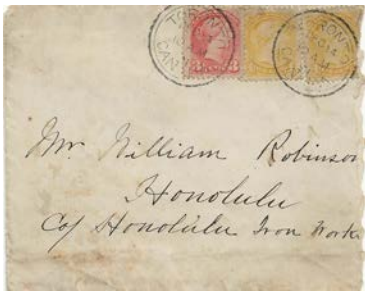 TORONTO
CANADA
3
Mr William Robinson
Honolulu
C/ Honolulu Iron Works